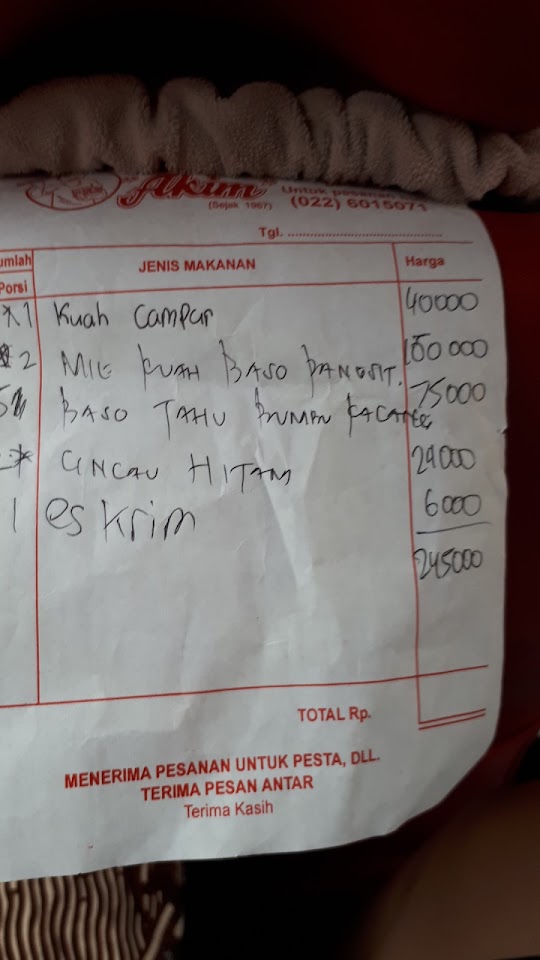 Akim
Untuk pesanan
(Sejak 1967) (022) 6015071
Tgl. ..........................................
umlah JENIS MAKANAN Harga
Porsi
1 Kuah Campur 40000
2 MIE KUAH BASO PANGSIT. 100000
5 BASO TAHU BUMBU KACANG 75000
CINCAU HITAM 24000
1 es krim 6000
245000
TOTAL Rp.
MENERIMA PESANAN UNTUK PESTA, DLL.
TERIMA PESAN ANTAR
Terima Kasih